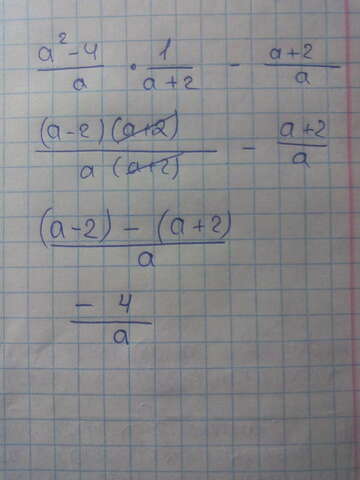 (a² - 4)/a · 1/(a + 2) - (a + 2)/a
((a - 2)(a + 2))/(a (a + 2)) - (a + 2)/a
((a - 2) - (a + 2))/a
(- 4)/a